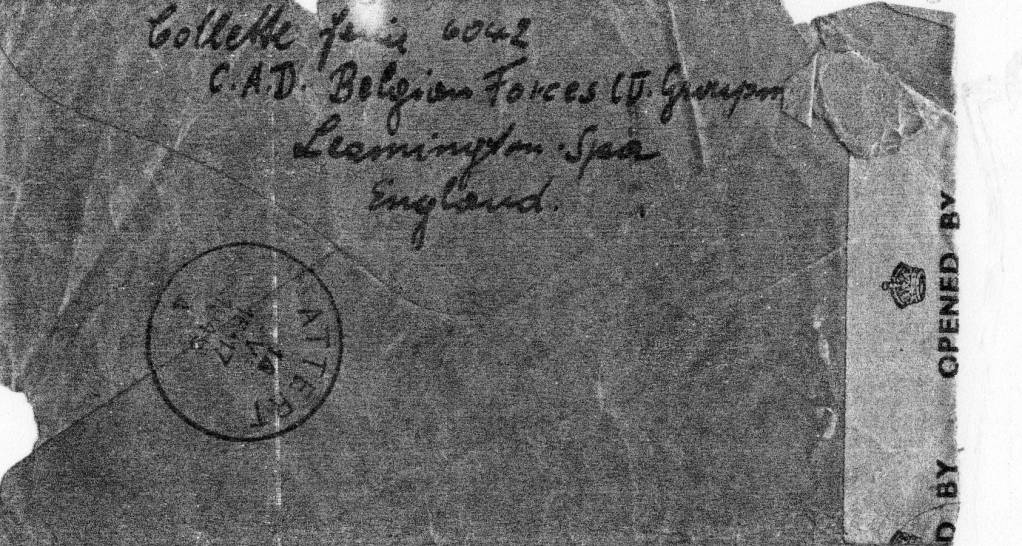 Collette 6042
C.A.D. Belgian Forces
Leamington-Spa
England.
ATTERT
OPENED BY
D BY